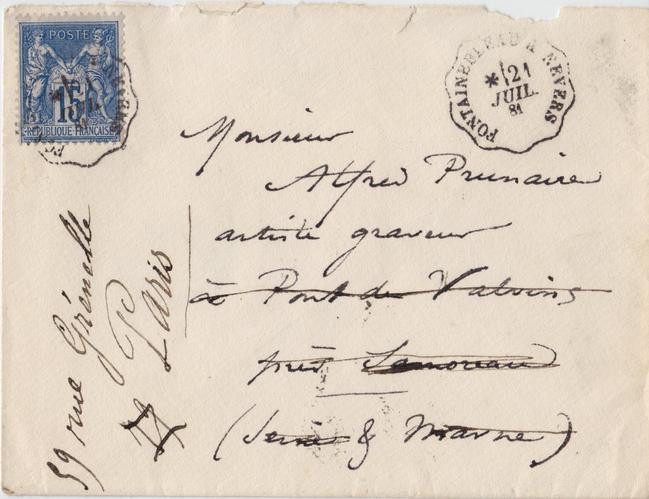 POSTE
15
RÉPUBLIQUE FRANÇAISE
FONTAINEBLEAU A NEVERS
21
JUIL.
81
Monsieur
Alfred Prunaire
artiste graveur
à Pont de Valvins
près Samoreau
(Seine & Marne)
59 rue Grenelle
Paris